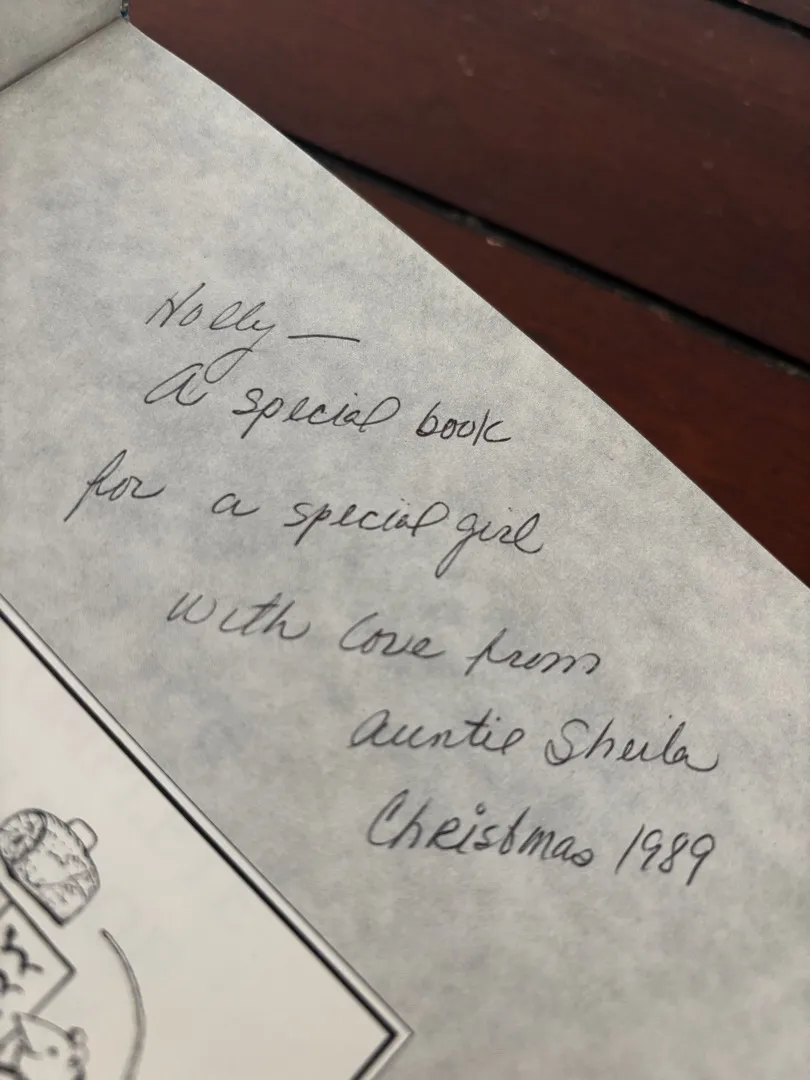 Holly —
A special book
for a special girl
with love from
Auntie Sheila
Christmas 1989